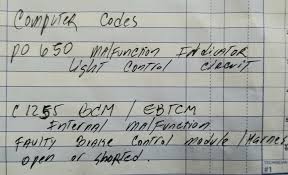 Computer Codes
PO 650 Malfunction Indicator
Light Control Circuit
C1255 BCM / EBTCM
Internal malfunction
Faulty Brake Control module / Harness
open or shorted.
TECHNICIAN
#1